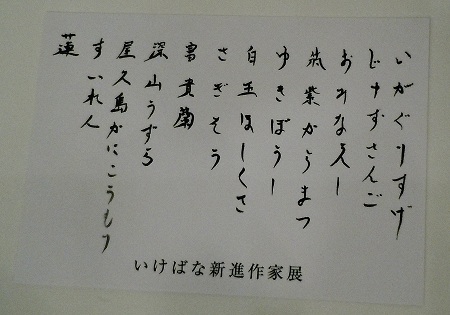 いがぐりすげ
じゅずさんご
おみなえし
筑紫からまつ
ゆきぼうし
白玉ほしくさ
さぎそう
富貴蘭
深山うずら
屋久島かにこうもり
すいれん
蓮
いけばな新進作家展